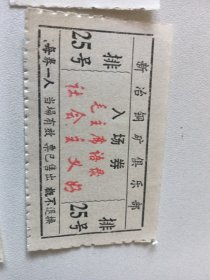 新冶铜矿俱乐部
排 入场券 排
25号 毛主席语录 25号
社会主义好
每券一人 当场有效 票已售出 概不退换